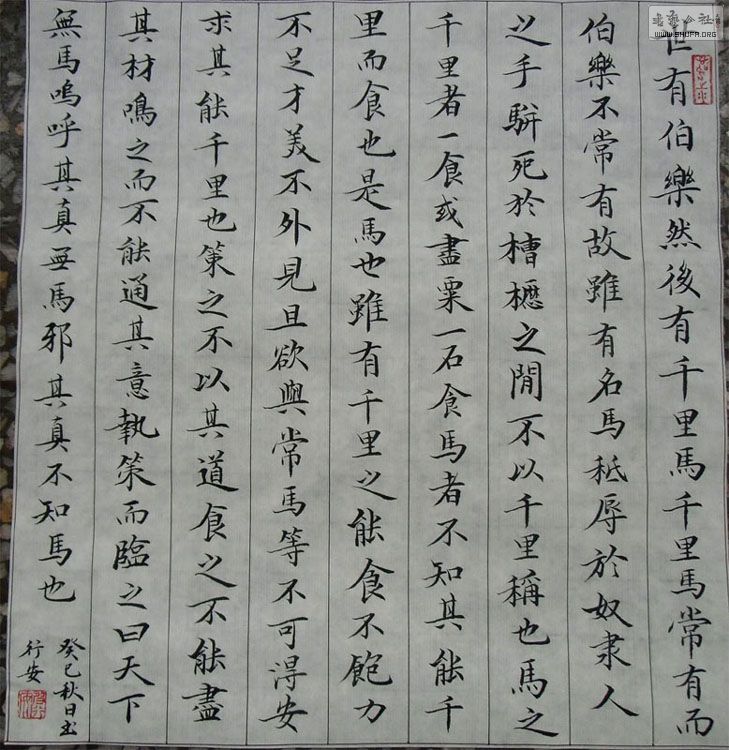 世有伯樂然後有千里馬千里馬常有而
伯樂不常有故雖有名馬秪辱於奴隶人
之手駢死於槽櫪之閒不以千里稱也馬之
千里者一食或盡粟一石食馬者不知其能千
里而食也是馬也雖有千里之能食不飽力
不足才美不外見且欲與常馬等不可得安
求其能千里也策之不以其道食之不能盡
其材鳴之而不能通其意執策而臨之曰天下
無馬嗚呼其真無馬邪其真不知馬也
癸巳秋日書
行安
書藝公社
WWW.SHUFA.ORG